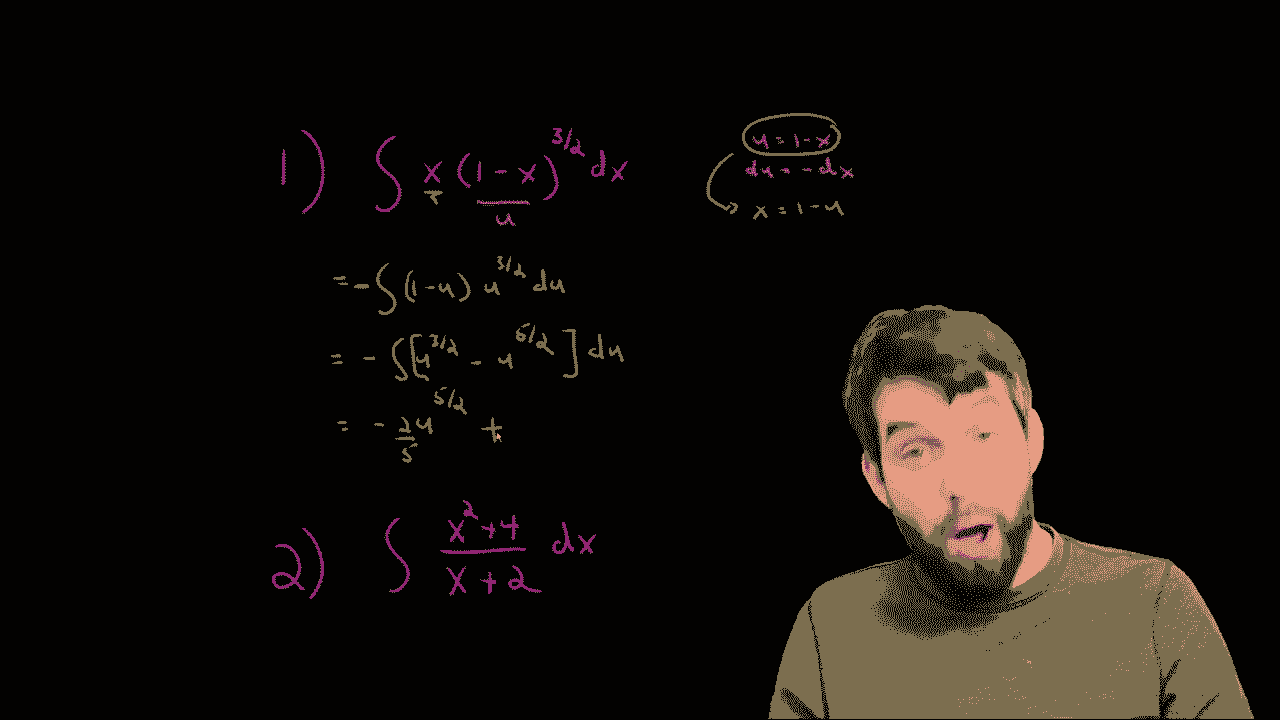 1) ∫ x (1 - x)^{3/2} dx
u
u = 1 - x
du = - dx
x = 1 - u
= - ∫ (1 - u) u^{3/2} du
= - ∫ [u^{3/2} - u^{5/2}] du
= - 2/5 u^{5/2} +
2) ∫ (x^2 + 4)/(x + 2) dx